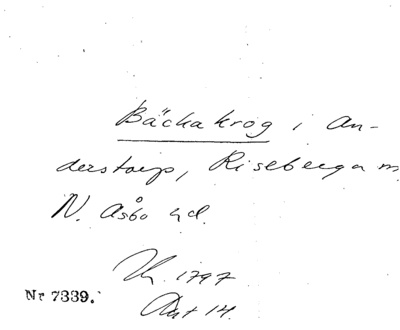 Bäckakrog i An-
derstorp, Riseberga
N. Åsbo hd.
1797
Nr 7339.
Akt 14.